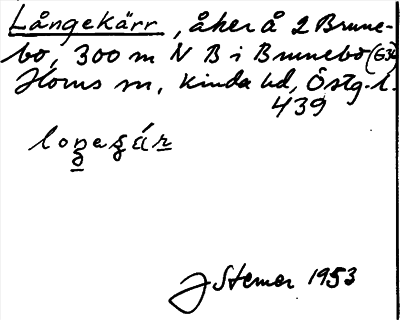 Långekärr, åker å 2 Brune-
bo, 300 m N B i Brunebo (G3c)
Horns sn, Kinda hd, Östg. l.
439
loŋəgár
J Stemer 1953